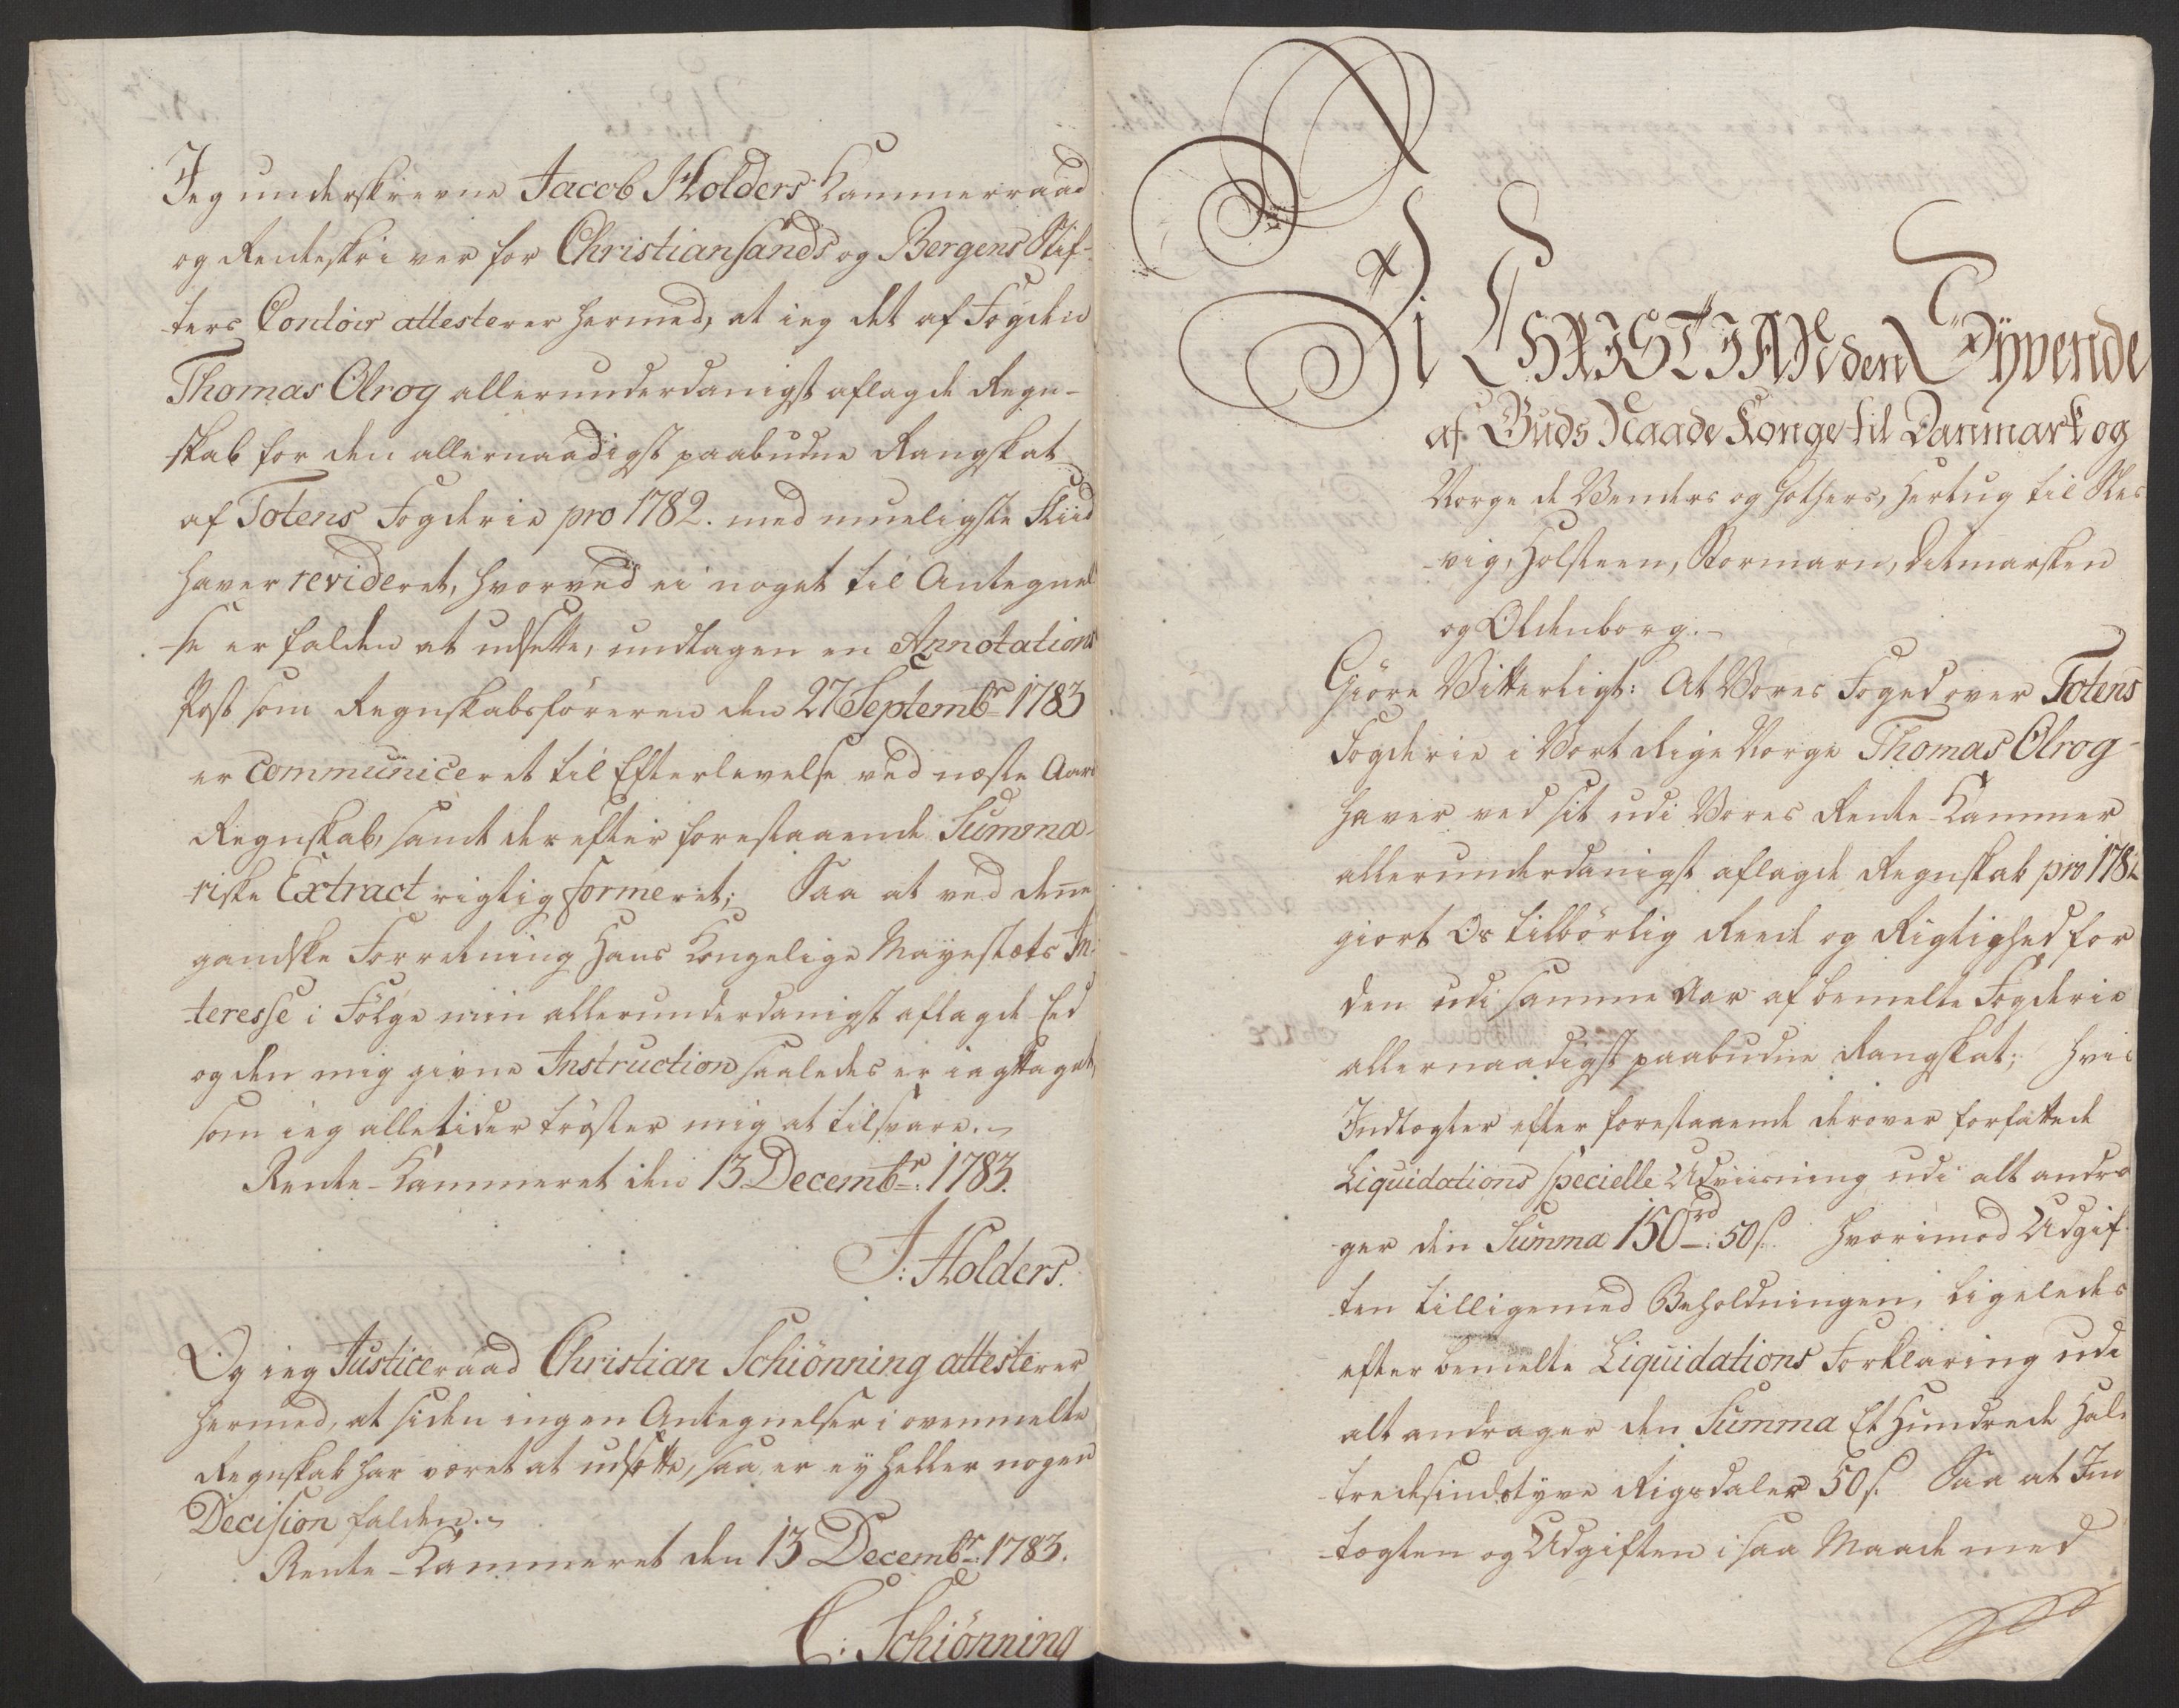 Jeg underskrevne Jacob Holders Kammerraad
og Renteskriver for Christiansands og Bergens Stif-
ters Contoir attesterer hermed, at ieg det af Fogden
Thomas Olrog allerunderdanigst aflagde Regn-
skab for den allernaadigst paabudne Rangskat
af Totens Fogderie pro 1782. med mueligste Fliid
haver revideret, hvorved ei noget til Antegnel
-se er falden at udsette, undtagen en Annotations
Post som Regnskabsføreren den 27 Septembr 1783
er communiceret til Efterlevelse ved næste Aars
Regnskab, samt derefter forestaaende Summa-
riske Extract rigtig formeret; Saa at ved denne
gandske Forretning Hans Kongelige Mayestæts In-
teresse i Følge min allerunderdanigst aflagde Eed
og den mig givne Instruction saaledes er iagttaget,
som ieg alletider trøster mig at tilsvare.
Rente-Kammeret den 13 Decembr: 1783.
J: Holders.
Og ieg Justiceraad Christian Schiönning attesterer
hermed, at siden ingen Antegnelser i ovenmelte
Regnskab har været at udsætte, saa er ey heller nogen
Decision falden.
Rente-Kammeret den 13 Decembr: 1783.
C: Schiönning
Vi CHRISTIAN den Syvende
af Guds Naade Konge til Danmark og
Norge de Venders og Gothers, Hertug til Sles
-vig, Holsteen, Stormarn, Ditmarsken
og Oldenborg.
Giöre Vitterligt: At Vores Foged over Totens
Fogderie i Vort Rige Norge Thomas Olrog
haver ved sit udi Vores Rente-Kammer
allerunderdanigst aflagde Regnskab pro 1782
giort Os tilbörlig Reede og Rigtighed for
den udi samme Aar af bemelte Fogderie
allernaadigst paabudne Rangskat; Hvis
Indtægter efter forestaaende derover forfattede
Liquidations specielle Udviisning udi alt andra
ger den Summa 150 rd: 50 s. Hvorimod Udgif
ten tilligemed Beholdningen, ligeledes
efter bemelte Liquidations Forklaring udi
alt andrager den Summa Et Hundrede Halv
tredsindstyve Rigsdaler 50 s. Saa at Ind
-tægten og Udgiften i saa Maade med